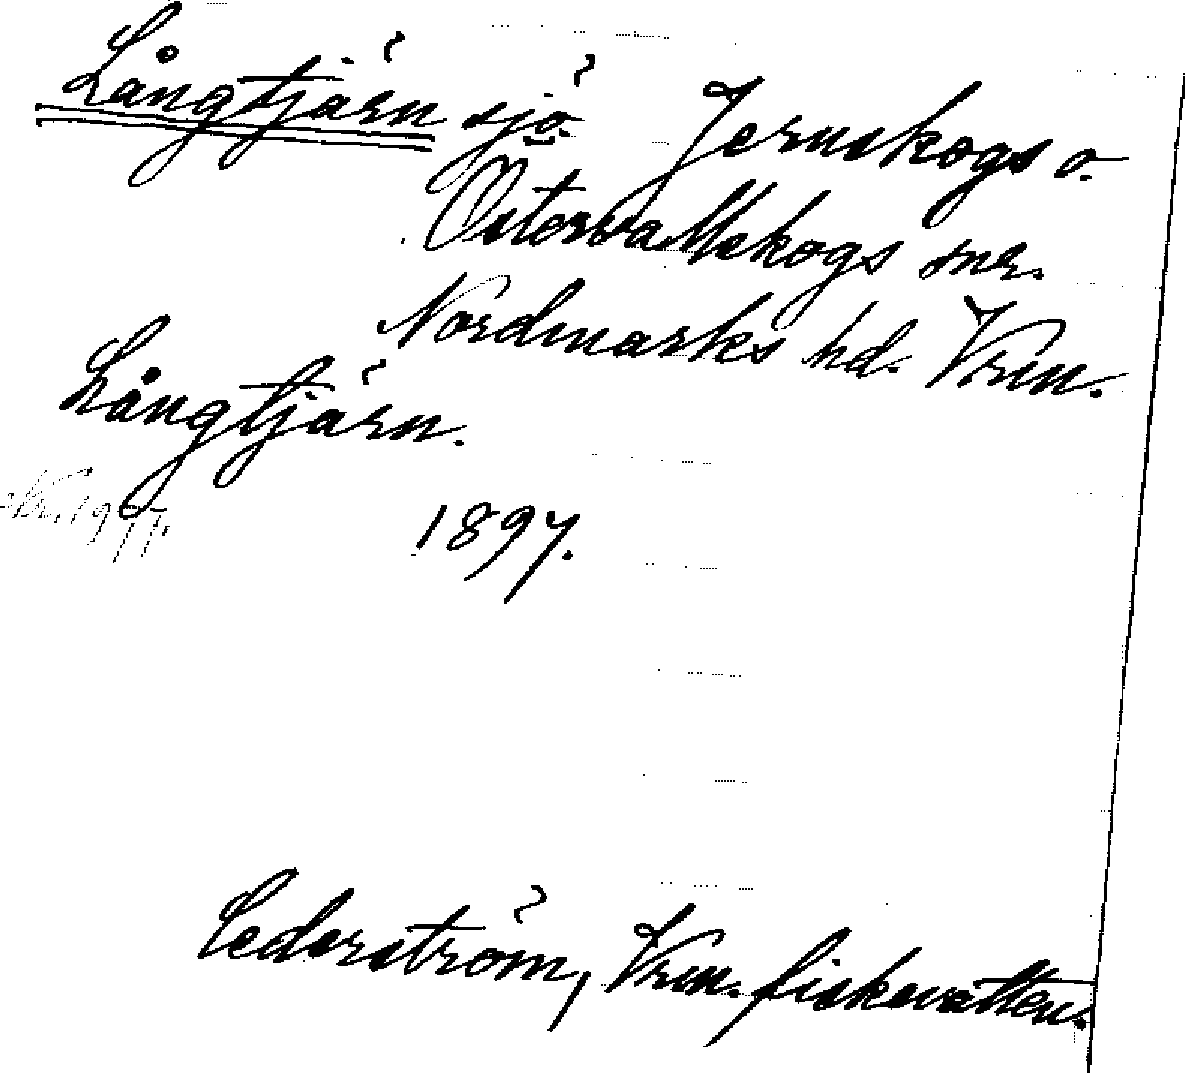 Långtjärn sjö Jernskogs o.
Östervallskogs snr.
Nordmarks hd. Vrm.
Långtjärn.
1897.
Cederström, Vrm. fiskevatten.